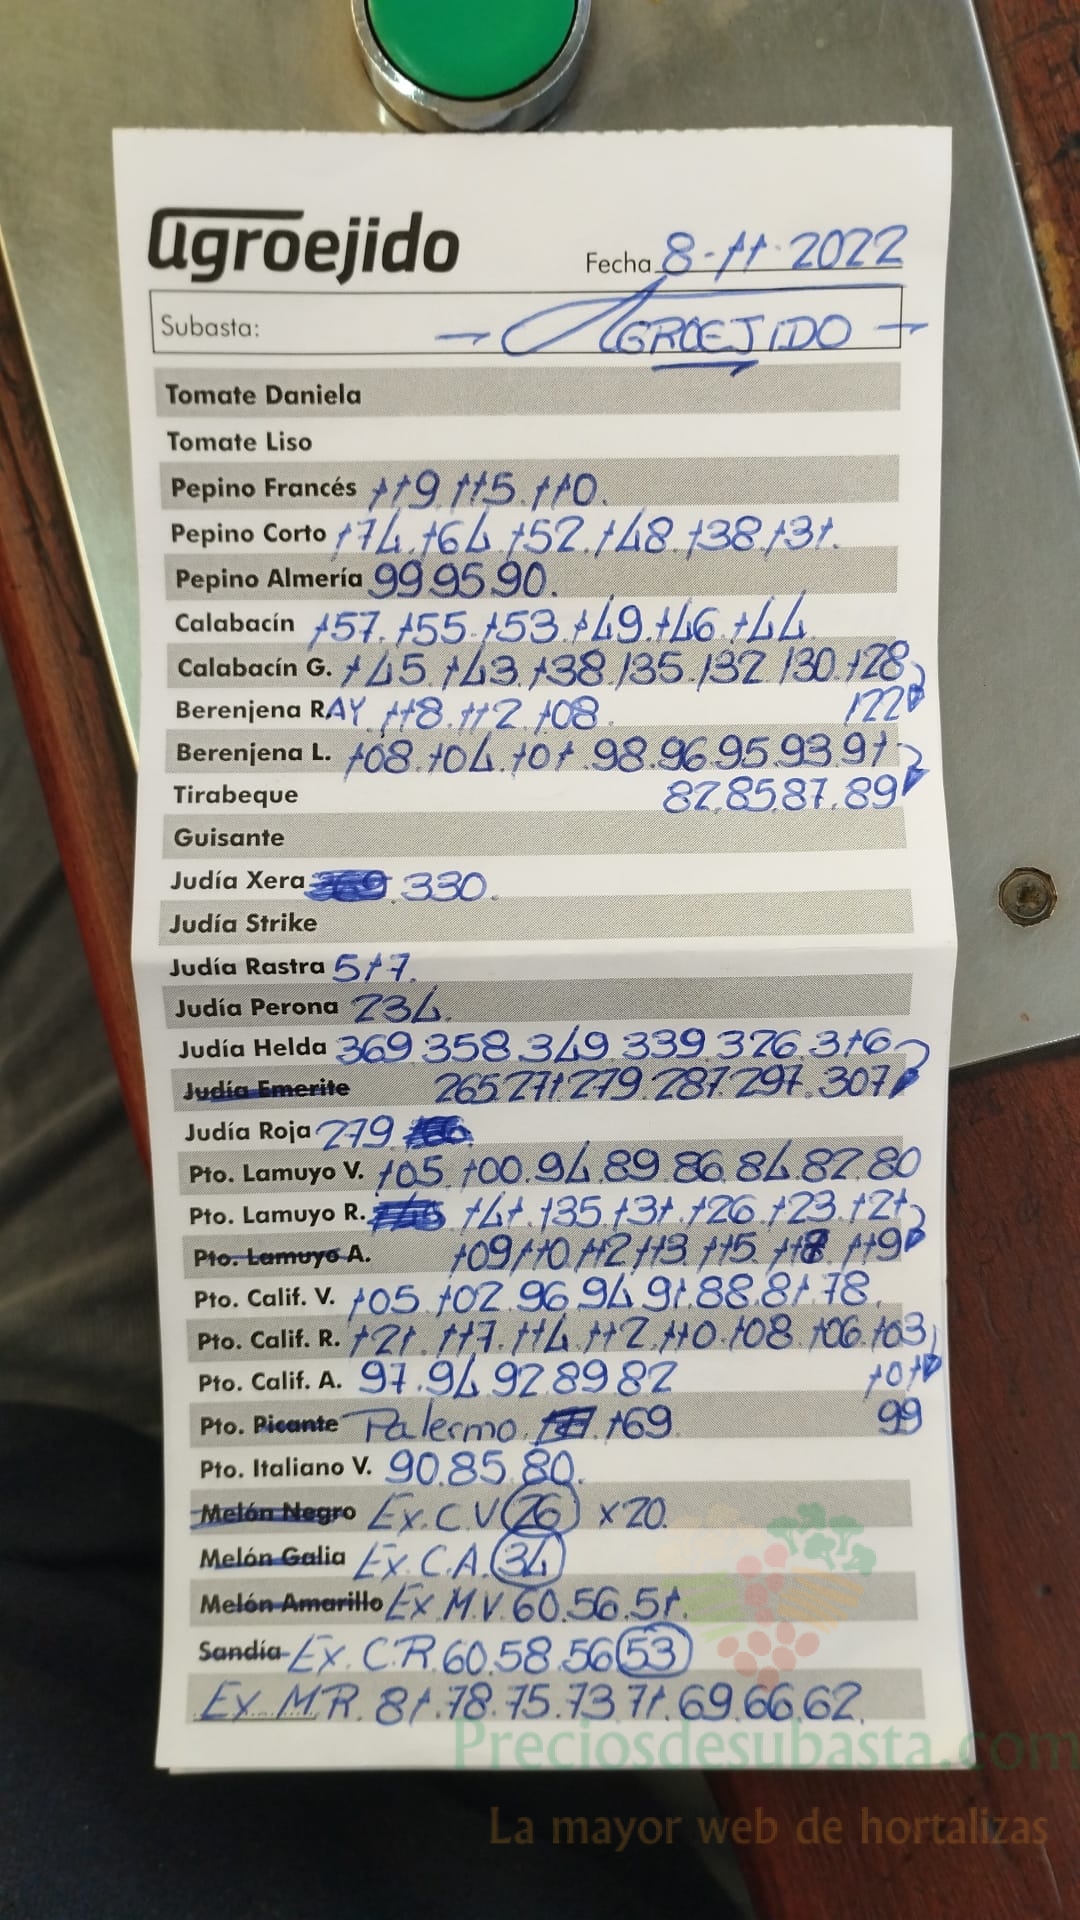 agroejido
Fecha 8-11-2022
Subasta: - AGROEJIDO -
Tomate Daniela
Tomate Liso
Pepino Francés 119.115.110.
Pepino Corto 174.164.152.148.138.131.
Pepino Almería 99.95.90.
Calabacín 157.155.153.149.146.144
Calabacín G. 145.143.138.135.132.130.128
Berenjena RAY 118.112.108. 122
Berenjena L. 108.104.101.98.96.95.93.91
Tirabeque 82.85.87.89
Guisante
Judía Xera 330.
Judía Strike
Judía Rastra 517.
Judía Perona 234.
Judía Helda 369.358.349.339.326.316
Judía Emerite 265.271.279.287.297.307
Judía Roja 279
Pto. Lamuyo V. 105.100.94.89.86.84.82.80
Pto. Lamuyo R. 141.135.131.126.123.121
Pto. Lamuyo A. 109.110.112.113.115.118.119
Pto. Calif. V. 105.102.96.94.91.88.81.78.
Pto. Calif. R. 121.117.114.112.110.108.106.103
Pto. Calif. A. 97.94.92.89.82 101
Pto. Picante Palermo. 169. 99
Pto. Italiano V. 90.85.80.
Melón Negro Ex.C.V 26 x20.
Melón Galia Ex.C.A. 34
Melón Amarillo Ex.M.V. 60.56.51.
Sandía Ex.C.R. 60.58.56 53
Ex.M.R. 81.78.75.73.71.69.66.62.
Preciosdesubasta.com
La mayor web de hortalizas